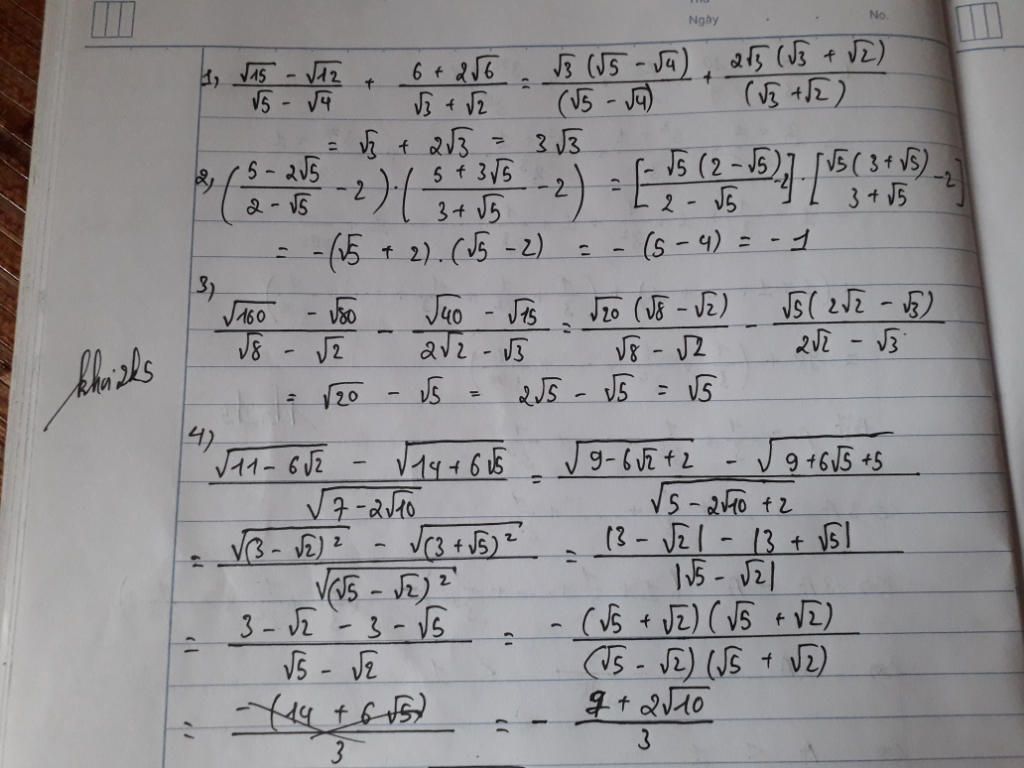 Ngày No.
1, \frac{\sqrt{15} - \sqrt{12}}{\sqrt{5} - \sqrt{4}} + \frac{6 + 2\sqrt{6}}{\sqrt{3} + \sqrt{2}} = \frac{\sqrt{3} (\sqrt{5} - \sqrt{4})}{(\sqrt{5} - \sqrt{4})} + \frac{2\sqrt{3} (\sqrt{3} + \sqrt{2})}{(\sqrt{3} + \sqrt{2})}
= \sqrt{3} + 2\sqrt{3} = 3\sqrt{3}
2, (\frac{5 - 2\sqrt{5}}{2 - \sqrt{5}} - 2) \cdot (\frac{5 + 3\sqrt{5}}{3 + \sqrt{5}} - 2) = [\frac{-\sqrt{5} (2 - \sqrt{5})}{2 - \sqrt{5}} - 2] \cdot [\frac{\sqrt{5} (3 + \sqrt{5})}{3 + \sqrt{5}} - 2]
= -(\sqrt{5} + 2) \cdot (\sqrt{5} - 2) = - (5 - 4) = - 1
3, \frac{\sqrt{160} - \sqrt{80}}{\sqrt{8} - \sqrt{2}} - \frac{\sqrt{40} - \sqrt{15}}{2\sqrt{2} - \sqrt{3}} = \frac{\sqrt{20} (\sqrt{8} - \sqrt{2})}{\sqrt{8} - \sqrt{2}} - \frac{\sqrt{5} (2\sqrt{2} - \sqrt{3})}{2\sqrt{2} - \sqrt{3}}
khai2k5
= \sqrt{20} - \sqrt{5} = 2\sqrt{5} - \sqrt{5} = \sqrt{5}
4) \frac{\sqrt{11 - 6\sqrt{2}} - \sqrt{14 + 6\sqrt{5}}}{\sqrt{7 - 2\sqrt{10}}} = \frac{\sqrt{9 - 6\sqrt{2} + 2} - \sqrt{9 + 6\sqrt{5} + 5}}{\sqrt{5 - 2\sqrt{10} + 2}}
= \frac{\sqrt{(3 - \sqrt{2})^2} - \sqrt{(3 + \sqrt{5})^2}}{\sqrt{(\sqrt{5} - \sqrt{2})^2}} = \frac{|3 - \sqrt{2}| - |3 + \sqrt{5}|}{|\sqrt{5} - \sqrt{2}|}
= \frac{3 - \sqrt{2} - 3 - \sqrt{5}}{\sqrt{5} - \sqrt{2}} = - \frac{(\sqrt{5} + \sqrt{2}) (\sqrt{5} + \sqrt{2})}{(\sqrt{5} - \sqrt{2}) (\sqrt{5} + \sqrt{2})}
= \frac{- (14 + 6\sqrt{5})}{3} = - \frac{7 + 2\sqrt{10}}{3}